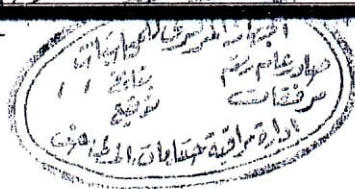 الجهاز المركزى للمحاسبات
صادر عام رقم بتاريخ / /
مرفقات توقيع
ادارة مراقبة حسابات